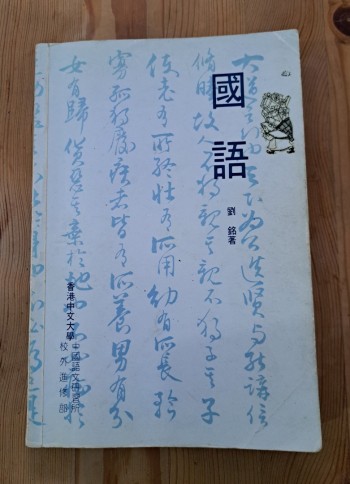 國語
劉銘著
香港中文大學
中國語文研習所
校外進修部
大道之行也天下為公選賢與能講信
修睦故人不獨親其親不獨子其子
使老有所終壯有所用幼有所長矜
寡孤獨廢疾者皆有所養男有分
女有歸貨惡其棄於地也